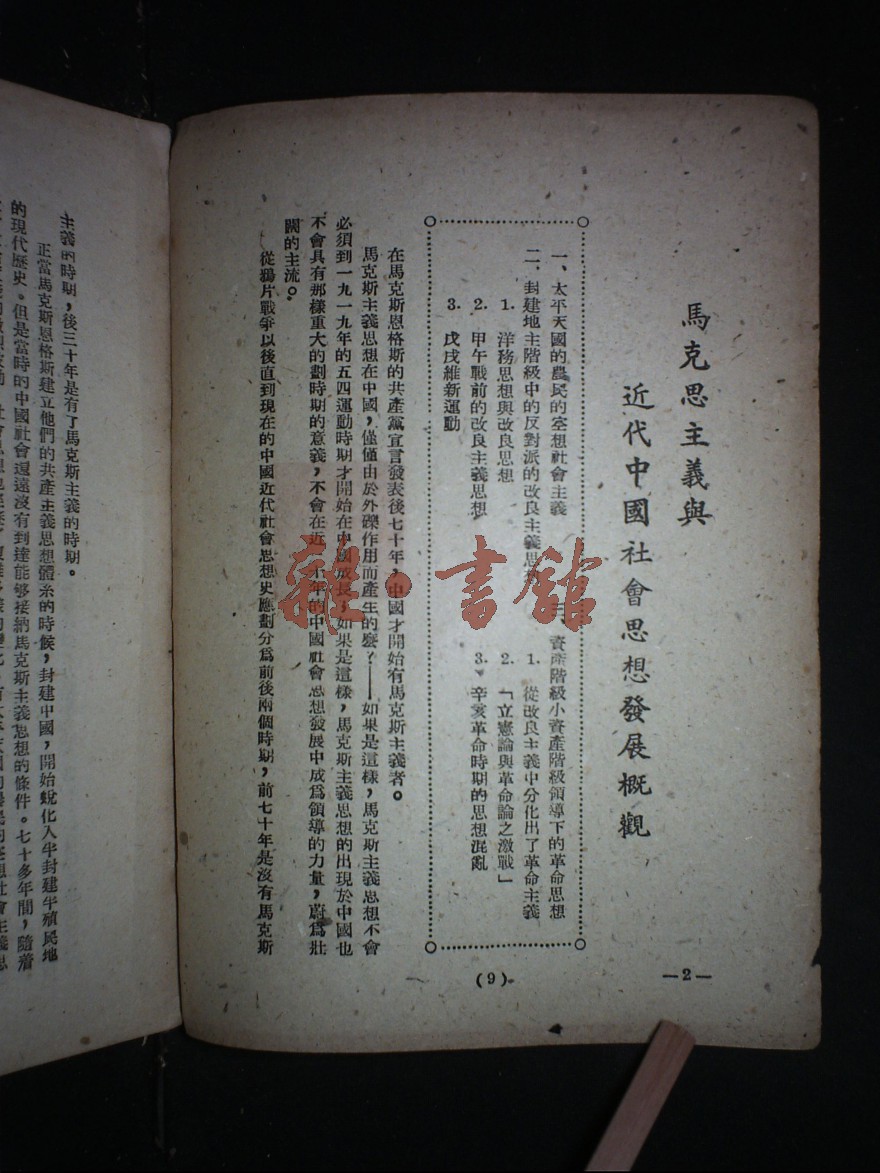 馬克思主義與
近代中國社會思想發展概觀
—2—
一、太平天國的農民的空想社會主義
二、封建地主階級中的反對派的改良主義思想
1. 洋務思想與改良思想
2. 甲午戰前的改良主義思想
3. 戊戌維新運動
三、資產階級小資產階級領導下的革命思想
1. 從改良主義中分化出了革命主義
2.「立憲論與革命論之激戰」
3. 辛亥革命時期的思想混亂
在馬克斯恩格斯的共產黨宣言發表後七十年，中國才開始有馬克斯主義者。
馬克斯主義思想在中國，僅僅由於外礫作用而產生的麼？——如果是這樣，馬克斯主義思想不會
必須到一九一九年的五四運動時期才開始在中國成長；如果是這樣，馬克斯主義思想的出現於中國也
不會具有那樣重大的劃時期的意義，不會在近 十年的中國社會思想發展中成為領導的力量，蔚為壯
闊的主流。
從鴉片戰爭以後直到現在的中國近代社會思想史應劃分為前後兩個時期，前七十年是沒有馬克斯
(9)
主義的時期，後三十年是有了馬克斯主義的時期。
正當馬克斯恩格斯建立他們的共產主義思想體系的時候，封建中國，開始蛻化入半封建半殖民地
的現代歷史。但是當時的中國社會還遠沒有到達能够接納馬克斯主義思想的條件。七十多年間，隨着
雜·書館